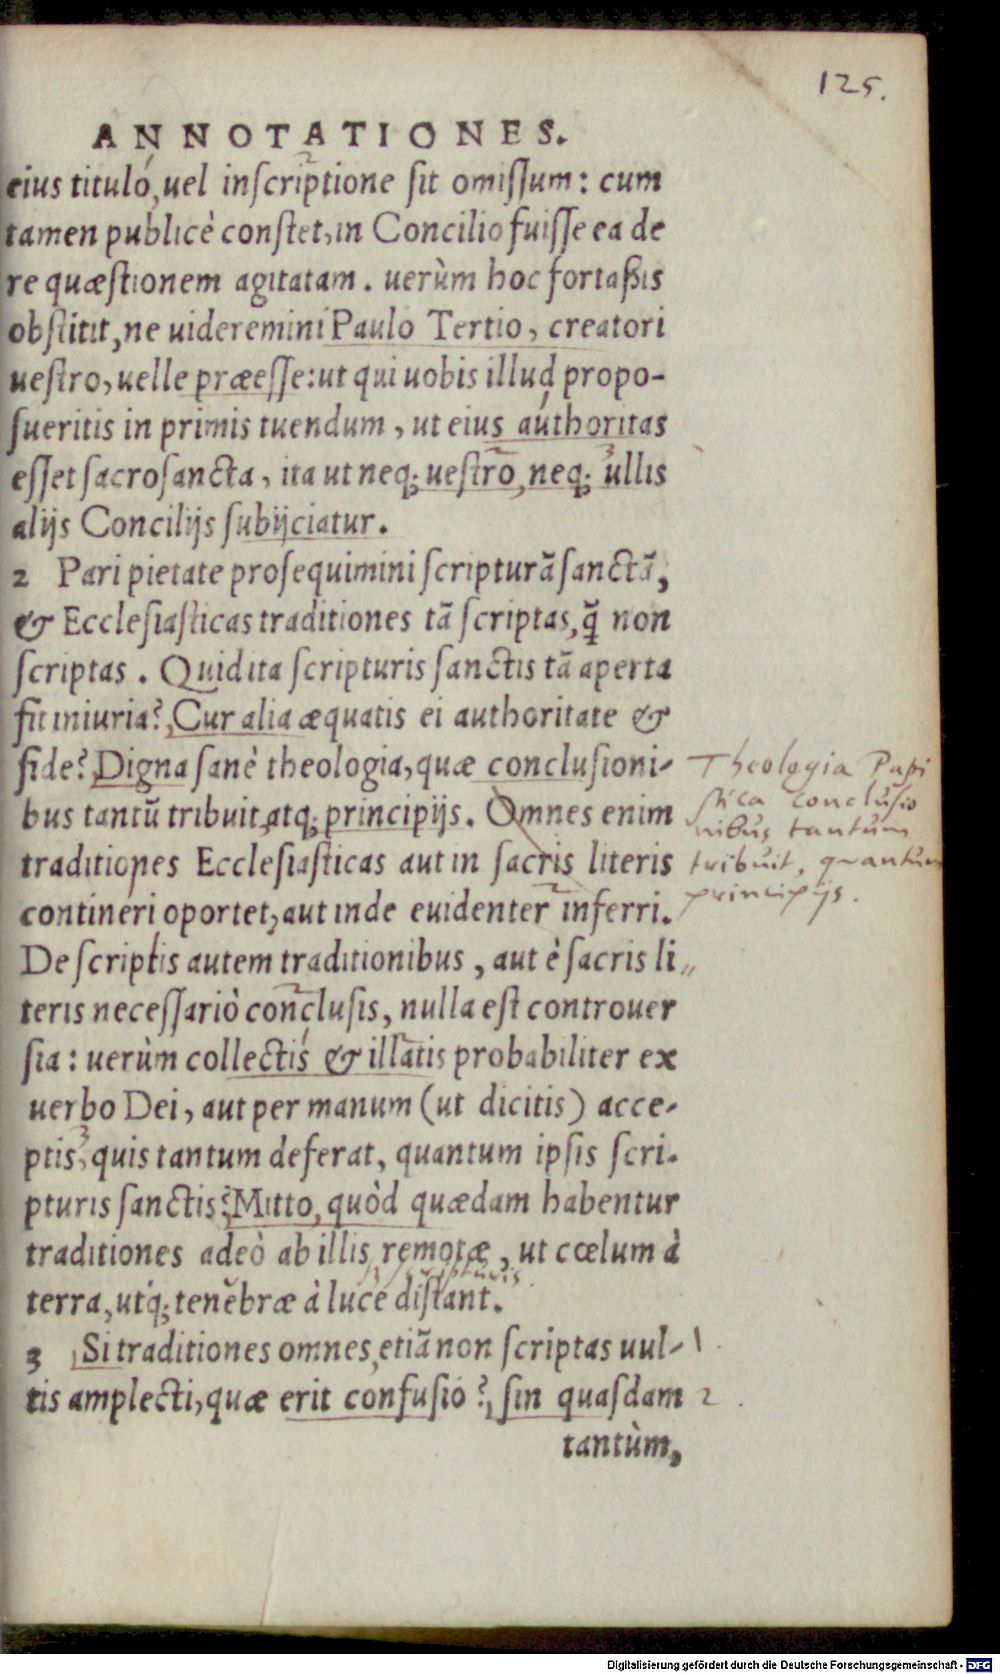 125.
ANNOTATIONES.
eius tituló, uel inscriptione sit omissum: cum
tamen publicè constet, in Concilio fuisse ea de
re quæstionem agitatam. uerùm hoc fortaßis
obstitit, ne uideremini Paulo Tertio, creatori
uestro, uelle præesse: ut qui uobis illud propo-
sueritis in primis tuendum, ut eius authoritas
esset sacrosancta, ita ut neq; uestro, neq; ullis
alijs Concilijs subijciatur.
2 Pari pietate prosequimini scripturã sanctã,
& Ecclesiasticas traditiones tã scriptas, q̃ non
scriptas. Quid ita scripturis sanctis tã aperta
fit iniuria? Cur alia æquatis ei authoritate &
fide? Digna sanè theologia, quæ conclusioni-
bus tantũ tribuit, atq; principijs. Omnes enim
traditiones Ecclesiasticas aut in sacris literis
contineri oportet, aut inde euidenter inferri.
De scriptis autem traditionibus, aut è sacris li„
teris necessariò conclusis, nulla est controuer
sia: uerùm collectis & illatis probabiliter ex
uerbo Dei, aut per manum (ut dicitis) acce-
ptis, quis tantum deferat, quantum ipsis scri-
pturis sanctis? Mitto, quòd quædam habentur
traditiones adeò ab illis remotæ, ut cœlum à
scripturis.
terra, utq́; tenebræ à luce distant.
3 Si traditiones omnes, etiã non scriptas uul- 1
tis amplecti, quæ erit confusio? sin quasdam 2
tantùm,
Theologia Papi
stica conclusio
nibus tantum
tribuit, quantum
principijs.
Digitalisierung gefördert durch die Deutsche Forschungsgemeinschaft - DFG